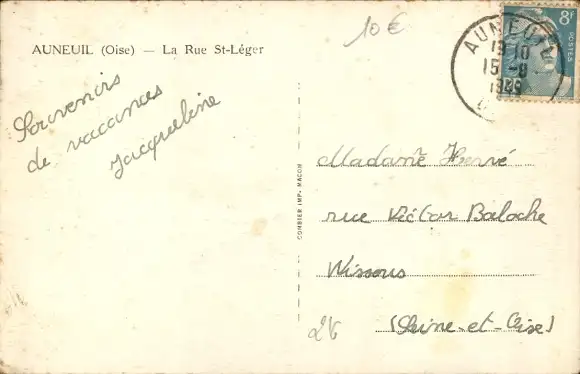 AUNEUIL (Oise) — La Rue St-Léger
10 €
8F
POSTES
AUNEUIL
15-8
Souvenirs
de vacances
Jacqueline
COMBIER IMP. MACON
Madame Hervé
rue Victor Baloche
Wissous
(Seine-et-Oise)